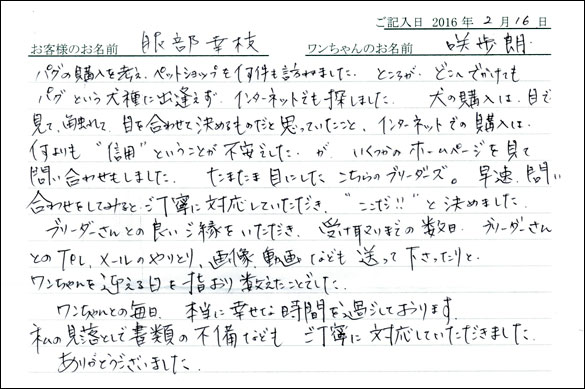 ご記入日 2016 年 2 月 16 日
お客様のお名前 服部幸枝 ワンちゃんのお名前 咲歩朗
パグの購入を考え、ペットショップを何件も訪ねました。ところが、どこへでかけても
パグという犬種に出逢えず、インターネットでも探しました。犬の購入は、目で
見て、触れて、目を合わせて決めるものだと思っていたこと、インターネットでの購入は、
何よりも"信用"ということが不安でした。が、いくつかのホームページを見て
問い合わせもしました。たまたま目にしたこちらのブリーダーズ。早速、問い
合わせをしてみると、ご丁寧に対応していただき、"ここだ!!"と決めました。
ブリーダーさんとの良いご縁をいただき、受け取りまでの数日、ブリーダーさん
とのTEL、メールのやりとり、画像、動画なども送って下さったりと、
ワンちゃんを迎える日を指おり数えたことでした。
ワンちゃんとの毎日、本当に幸せな時間を過ごしております。
私の見落として書類の不備なども ご丁寧に対応していただきました。
ありがとうございました。